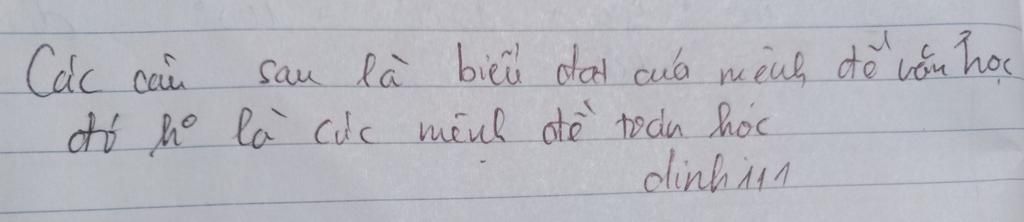 Các câu sau là biểu đạt của mệnh đề văn học
đó ko là các mệnh đề toán học
dinh111